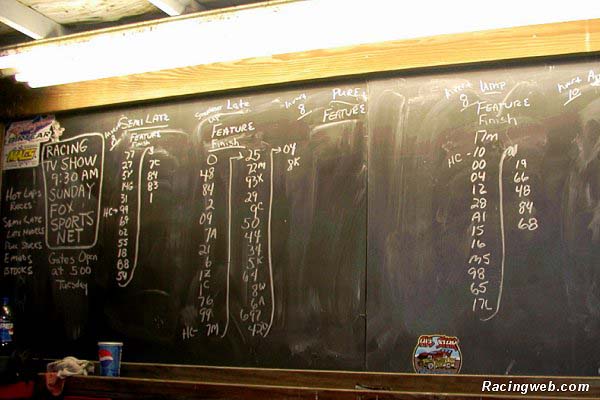 RACING
TV SHOW
9:30 AM
SUNDAY
FOX
SPORTS
NET
HOT LAPS
RACES
SEMI LATE
LATE MODELS
PURE STOCKS
EMODS
STOCKS
Gates Open
at 5:00
Tuesday
SEMI LATE
FEATURE
Finish
77
27
5Y
14G
31
HC→ 99
69
02
55
18
88
54
7C
84
83
1
Late
FEATURE
Finish
0
48
84
2
09
7A
21
6
1Z
1C
76
99
HC- 7M
25
72M
43X
29
9C
50
44
34
5K
64
8W
6A
697
42D
04
8K
Invert
8
PURE
FEATURE
Invert
8
UMP
FEATURE
Finish
17M
HC- 10
00
04
12
28
A1
15
16
M5
98
65
17L
19
66
48
84
68
Invert
10
Racingweb.com